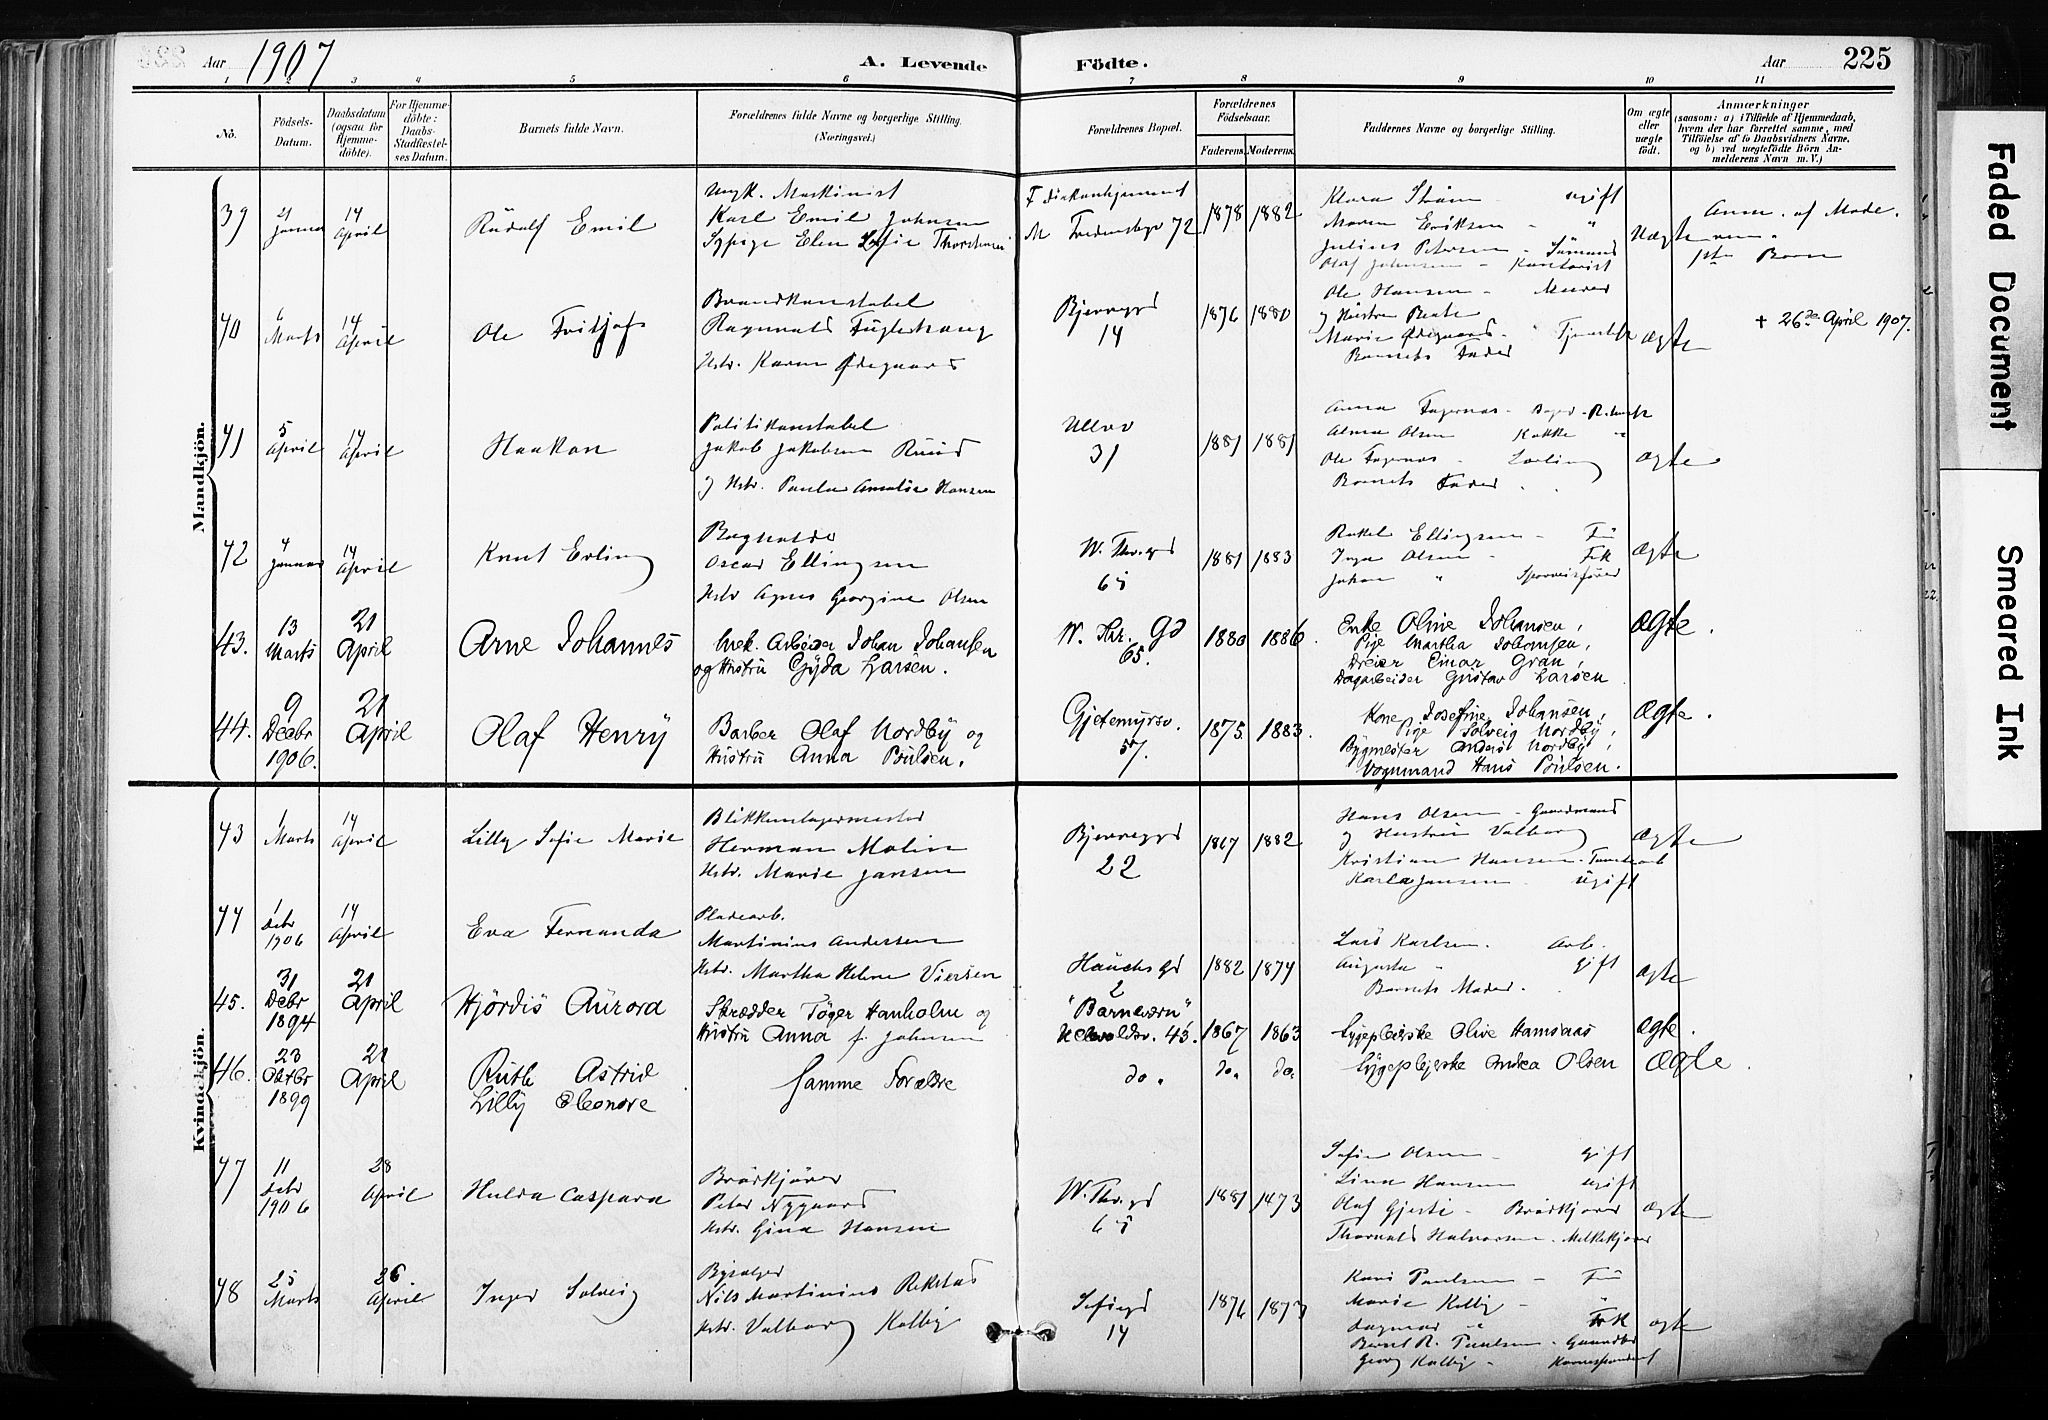 Aar 1907
A. Levende Födte.
Aar
225
1 2 3 4 5 6 7 8 9 10 11
No.
Födsels-Datum.
Daabsdatum (ogsaa for Hjemme-döbte).
For Hjemme-döbte: Daabs-Stadfæstel-ses Datum.
Barnets fulde Navn.
Forældrenes fulde Navne og borgerlige Stilling. (Næringsvei.)
Forældrenes Bopæl.
Forældrenes Födselsaar.
Faderens. Moderens.
Faddernes Navne og borgerlige Stilling.
Om ægte eller uægte födt.
Anmærkninger
(saasom: a) i Tilfælde af Hjemmedaab, hvem der har forrettet samme, med Tilföielse af to Daabsvidners Navne, og b) ved uægtefödte Börn An-melderens Navn m. V.)
Mandkjön.
39
21 Januar
14 April
Rudolf Emil
Ungk. Maskinist
Karl Emil Johnsen
Sypige Elen Sofie Thorstensen
F Diakonhjemmet
M Fredensbgv 72
1878 1882
Klara Strøm ugift
Maren Eriksen "
Julius Petersen - Sömand
Olaf Johnsen - Kontorist
Uægte
Anm. af Mode.
ren.
1ste Barn
40
6 Marts
14 April
Ole Fritjof
Brandkonstabel
Ragnvald Fuglehaug
Hstr. Karen Ødegaard
Bjerregd
14
1876 1880
Ole Hansen - Murer
og Hustru Beate
Marie Ødegaard -
Barnets Fader
ægte
† 26de April 1907.
41
5 April
14 April
Haakon
Politikonstabel
Jakob Jakobsen Ruud
og Hstr. Paula Amalie Hansen
Ullev
31
1881 1881
Anna Fagernas
Alma Olsen Kokke
Ole Fagernas - Lærling
Barnets Fader
ægte
42
4 Januar
14 April
Knut Erling
Oscar Ellingsen
Hstr Agnes Georgine Olsen
W. Thr. gd
65
1881 1883
Rakel Ellingsen - Fü
Inga Olsen - Frk
Johan " Sporveisfører
ægte
43.
13 Marts
21 April
Arne Johannes
Mek. Arbeider Johan Johansen
og Hustru Gyda Larsen.
W. Thr. Gd
65.
1880 1886.
Enke Oline Johansen,
Pige Martha Johansen,
Dreier Einar Gran,
Dagarbeider Gustav Larsen
Ægte.
44.
9 Decbr 1906.
21 April
Olaf Henry
Barber Olaf Nordby og
Hustru Anna Poulsen.
Gjetemyrsv.
57.
1875. 1883.
Kone Josefine Johansen,
Pige Solveig Nordby,
Bygmester Anders Nordby,
Vognmand Hans Poulsen.
Ægte.
Kvindekjön.
43
1 Marts
14 April
Lilly Sofie Marie
Blikkenslagermester
Herman Malin
Hstr. Marie Jansen
Bjerregd
22
1867 1882
Hans Olsen - Gaardmand
og Hustru Valborg
Kristian Hansen
Karla Jansen - ugift
ægte
44
1 Febr 1906
14 April
Eva Fernanda
Pladearb.
Martinius Andersen
Hstr. Martha Helene Viersen
Hauchs gd
2
1882 1874
Lars Karlsen. Arb.
Augusta " gift
Barnets Moder.
ægte
45.
31 Debr 1894
21 April
Hjördis Aurora
Skrædder Töger Hanholm og
Hustru Anna f. Johnsen
"Barnevern",
Uelandsv. 43.
1867 1863
Sygepleierske Olive Hamsaas
Ægte.
46.
23 Oktbr 1899
21 April
Ruth Astrid
Lilly Eleonore
Samme Forældre
do. do. do.
Sygeplejerske Andrea Olsen
Ægte.
47
11 Febr 1906
28 April
Hulda Caspara
Brödkjörer
Peter Nygaard
Hstr. Gina Hansen
W. Thr. gd
65
1881 1873
Sofie Olsen - gift
Lina Hansen ugift
Olaf Gjesti - Brödkjører
Thorvald Halvorsen - Melkekjører
Ægte
48
25 Marts
26. April
Inger Solveig
Nils Martinius Rekstad
Hstr. Valborg Kolby
Sofiegd
14
1876 1873
Kari Paulsen - Fü
Marie Kolby - "
Dagmar " Frk
Bernt R. Paulsen -
Georg Kolby - Korrespondent
ægte
Faded Document
Smeared Ink